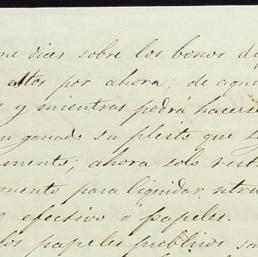 me dices sobre los bonos de
altos por ahora; de aqui
s y mientras podrá hacerse
n ganado su pleito que s
mento; ahora solo rest
mento para liquidar otra
o efectivo ó papeles.
los papeles publicos sa